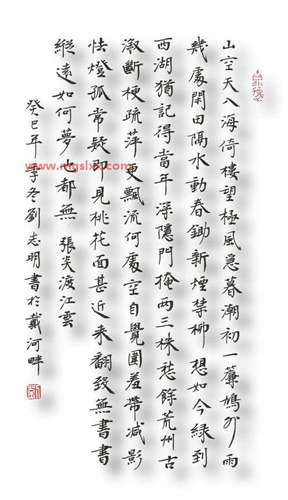 山空天入海倚樓望極風急暮潮初一簾鳩外雨
幾處閑田隔水動春鋤新煙禁柳想如今綠到
西湖猶記得當年深隱門掩兩三株愁餘荒州古
漵斷梗疏萍更飄流何處空自覺圍羞帶減影
怯燈孤常疑即見桃花面甚近來翻致無書書
縱遠如何夢也都無 張炎渡江雲
癸巳年季冬劉志明書於戴河畔